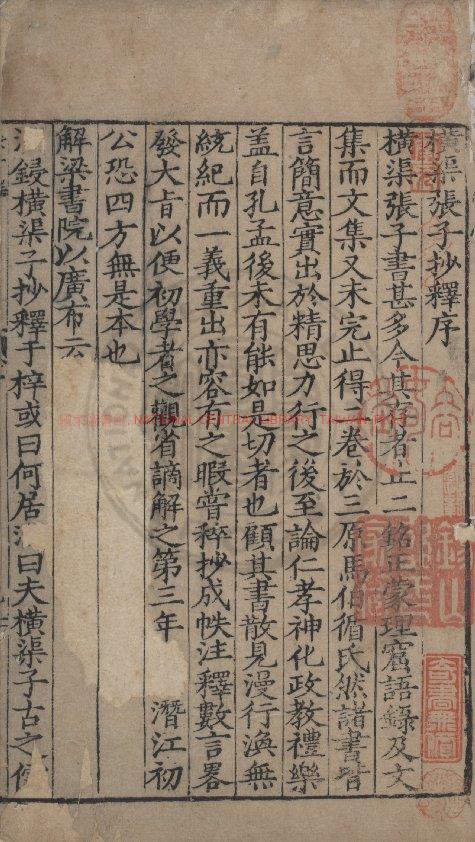 橫渠張子抄釋序
橫渠張子書甚多今其存者止二銘正蒙理窟語錄及文
集而文集又未完止得二卷於三原馬伯循氏然諸書皆
言簡意實出於精思力行之後至論仁孝神化政教禮樂
蓋自孔孟後未有能如是切者也顧其書散見漫行渙無
統紀而一義重出亦容有之暇嘗稡抄成帙注釋數言畧
發大旨以便初學者之觀省謫解之第三年
潛江初
公恐四方無是本也
解梁書院以廣布云
鋟橫渠子抄釋于梓或曰何居
曰夫橫渠子古之
國家圖書館 NATIONAL CENTRAL LIBRARY, TAIWAN